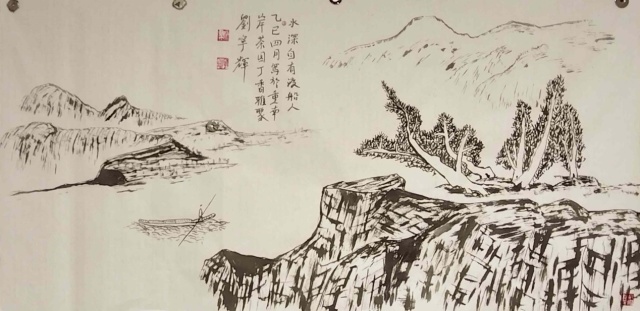 水深自有渡船人
乙巳四月写於重庆南
岸茶园丁香雅聚
劉宇輝